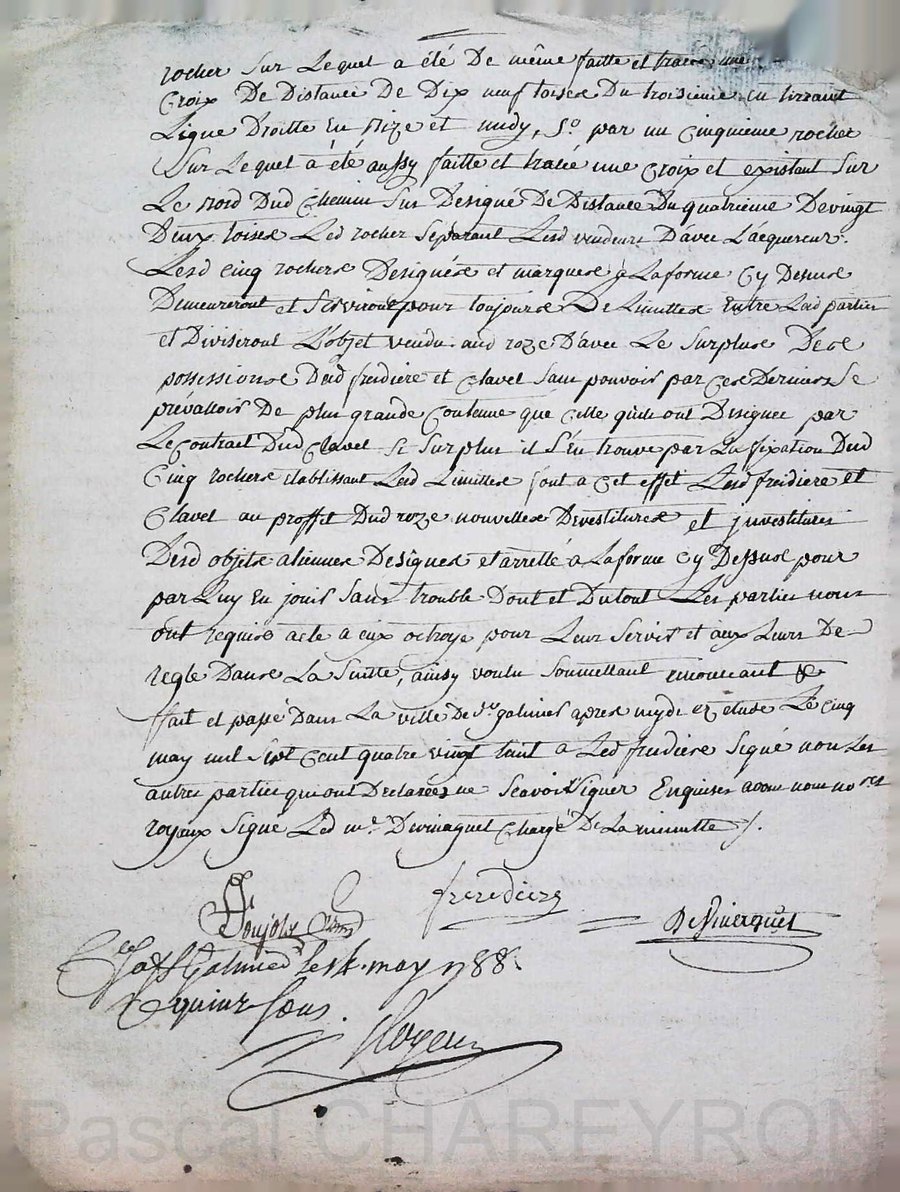 rocher sur Lequel a été De même faitte et tracée une
Croix De Distance De Dix neuf toises Du troisieme en tirrant
Ligne Droitte En bize et midy, 5.º par un Cinquieme rocher
Sur Lequel à été aussy faitte et tracée une Croix et existant Sur
Le nord Dud Chemin Sus Designé De Distance Du quatrieme De vingt
Deux toises Led rocher Séparant Lesd vendeurs D'avec L'acquereur.
Lesd cinq rochers Designés et marqués à La forme Cy Dessus
Demeureront et Serviront pour toujours De Limittes Entre Lesd parties
et Diviseront L'objet vendu aud roze D'avec Le Surplus Des
possessions Desd freidiere et Clavel Sans pouvoir par Ces Derniers Se
prévalloir De plus grande Contenue que Celle qu'ils ont Designée par
Le Contrat Dud Clavel Si Surplus il S'en trouve par La fixation Desd
Cinq rochers établissant Lesd Limittes font a Cet effet Lesd freidiere et
Clavel au proffit Dud roze nouvelles Devestitures et investitures
Desd objets aliennes Designes et arretté a La forme Cy Dessus pour
par Luy En jouir Sans trouble Dont et Dutout Les parties nous
ont requis acte a eux octroyé pour Leur Servir et aux Leurs De
regle Dans La Suitte, ainsy voulu Soumettant renonceant &
fait et passé Dans La ville De St galmier apres mydi ez etude Le Cinq
may mil Sept Cent quatre vingt huit a Led freidiere Signé non Les
autres parties qui ont Declarées ne Scavoir Signer Enquises avons nous nores
royaux Signé Led me. Devinaguet Chargé De La minutte /.
freredierre
Devineaguet
St Galmier le 14. may 1788.
quinze sous.